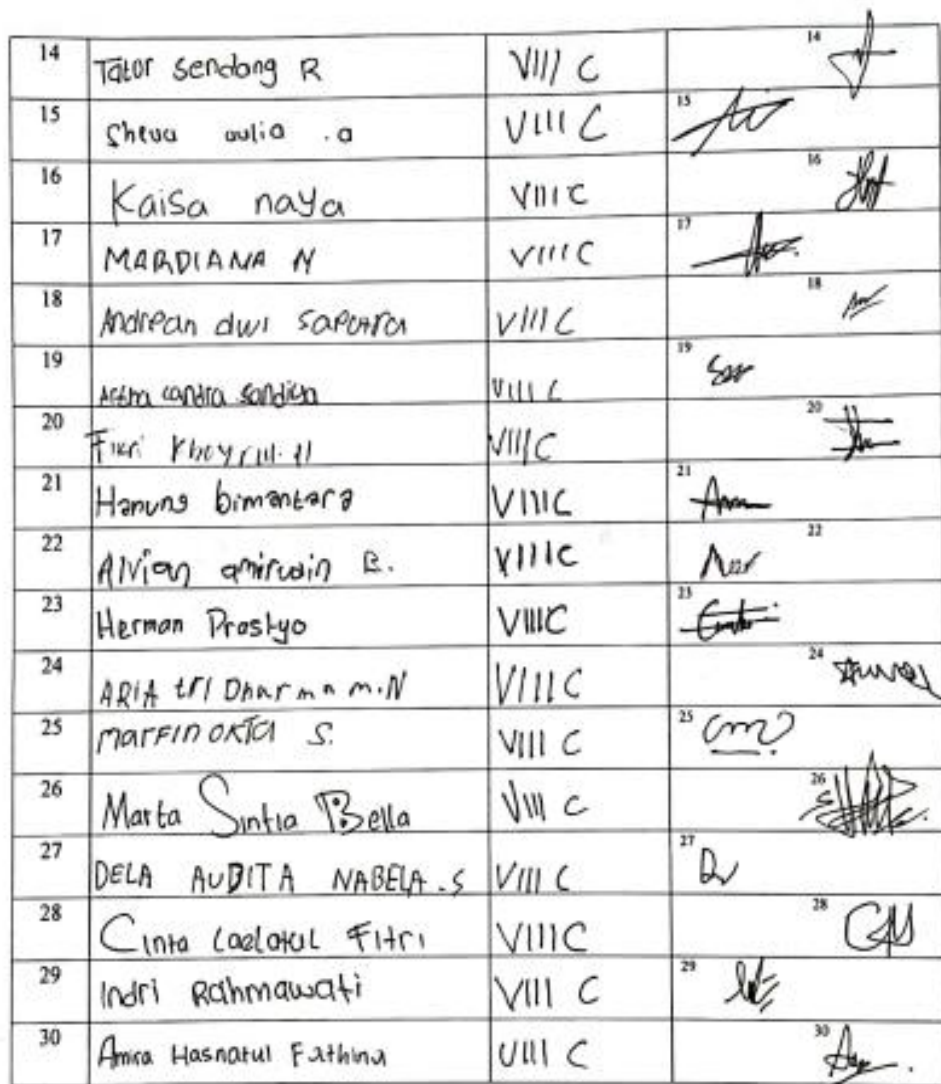 14 Tator Sendang R VIII C 14
15 Sheva aulia .a VIII C 15
16 Kaisa naya VIII C 16
17 MARDIANA N VIII C 17
18 Andrean dwi Saputra VIII C 18
19 candra sandiya VIII C 19
20 Fikri VIII C 20
21 Hanung bimantara VIII C 21
22 Alvian amirudin VIII C 22
23 Herman Prastyo VIII C 23
24 ARIA tri Dharma m.N VIII C 24
25 marfin okta S. VIII C 25
26 Marta Sintia Bella VIII C 26
27 DELA AUDITA NABELA.S VIII C 27
28 Cinta Laelatul Fitri VIII C 28
29 Indri Rahmawati VIII C 29
30 Amira Hasnatul Fathina VIII C 30